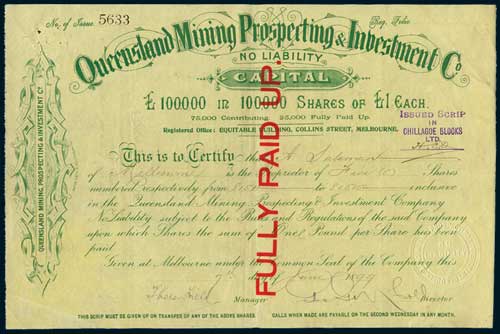 No. of Issue 5633
Reg. Folio
Queensland Mining Prospecting & Investment Co
NO LIABILITY
CAPITAL
£100000 IN 100000 SHARES OF £1 EACH.
75,000 Contributing. 25,000 Fully Paid Up.
Registered Office: EQUITABLE BUILDING, COLLINS STREET, MELBOURNE.
ISSUED SCRIP
IN
CHILLAGOE BLOCKS
LTD.
QUEENSLAND MINING, PROSPECTING & INVESTMENT CO.
FULLY PAID UP.
This is to Certify that
of Melbourne is the Proprietor of Five (5) Shares
numbered respectively from to inclusive
in the Queensland Mining Prospecting & Investment Company
No Liability subject to the Rules and Regulations of the said Company
upon which Shares the sum of One Pound per Share has been
paid
Given at Melbourne under the Common Seal of the Company this
7th day of June 1899
Manager
Director
THIS SCRIP MUST BE GIVEN UP ON TRANSFER OF ANY OF THE ABOVE SHARES.
CALLS WHEN MADE ARE PAYABLE ON THE SECOND WEDNESDAY IN ANY MONTH.